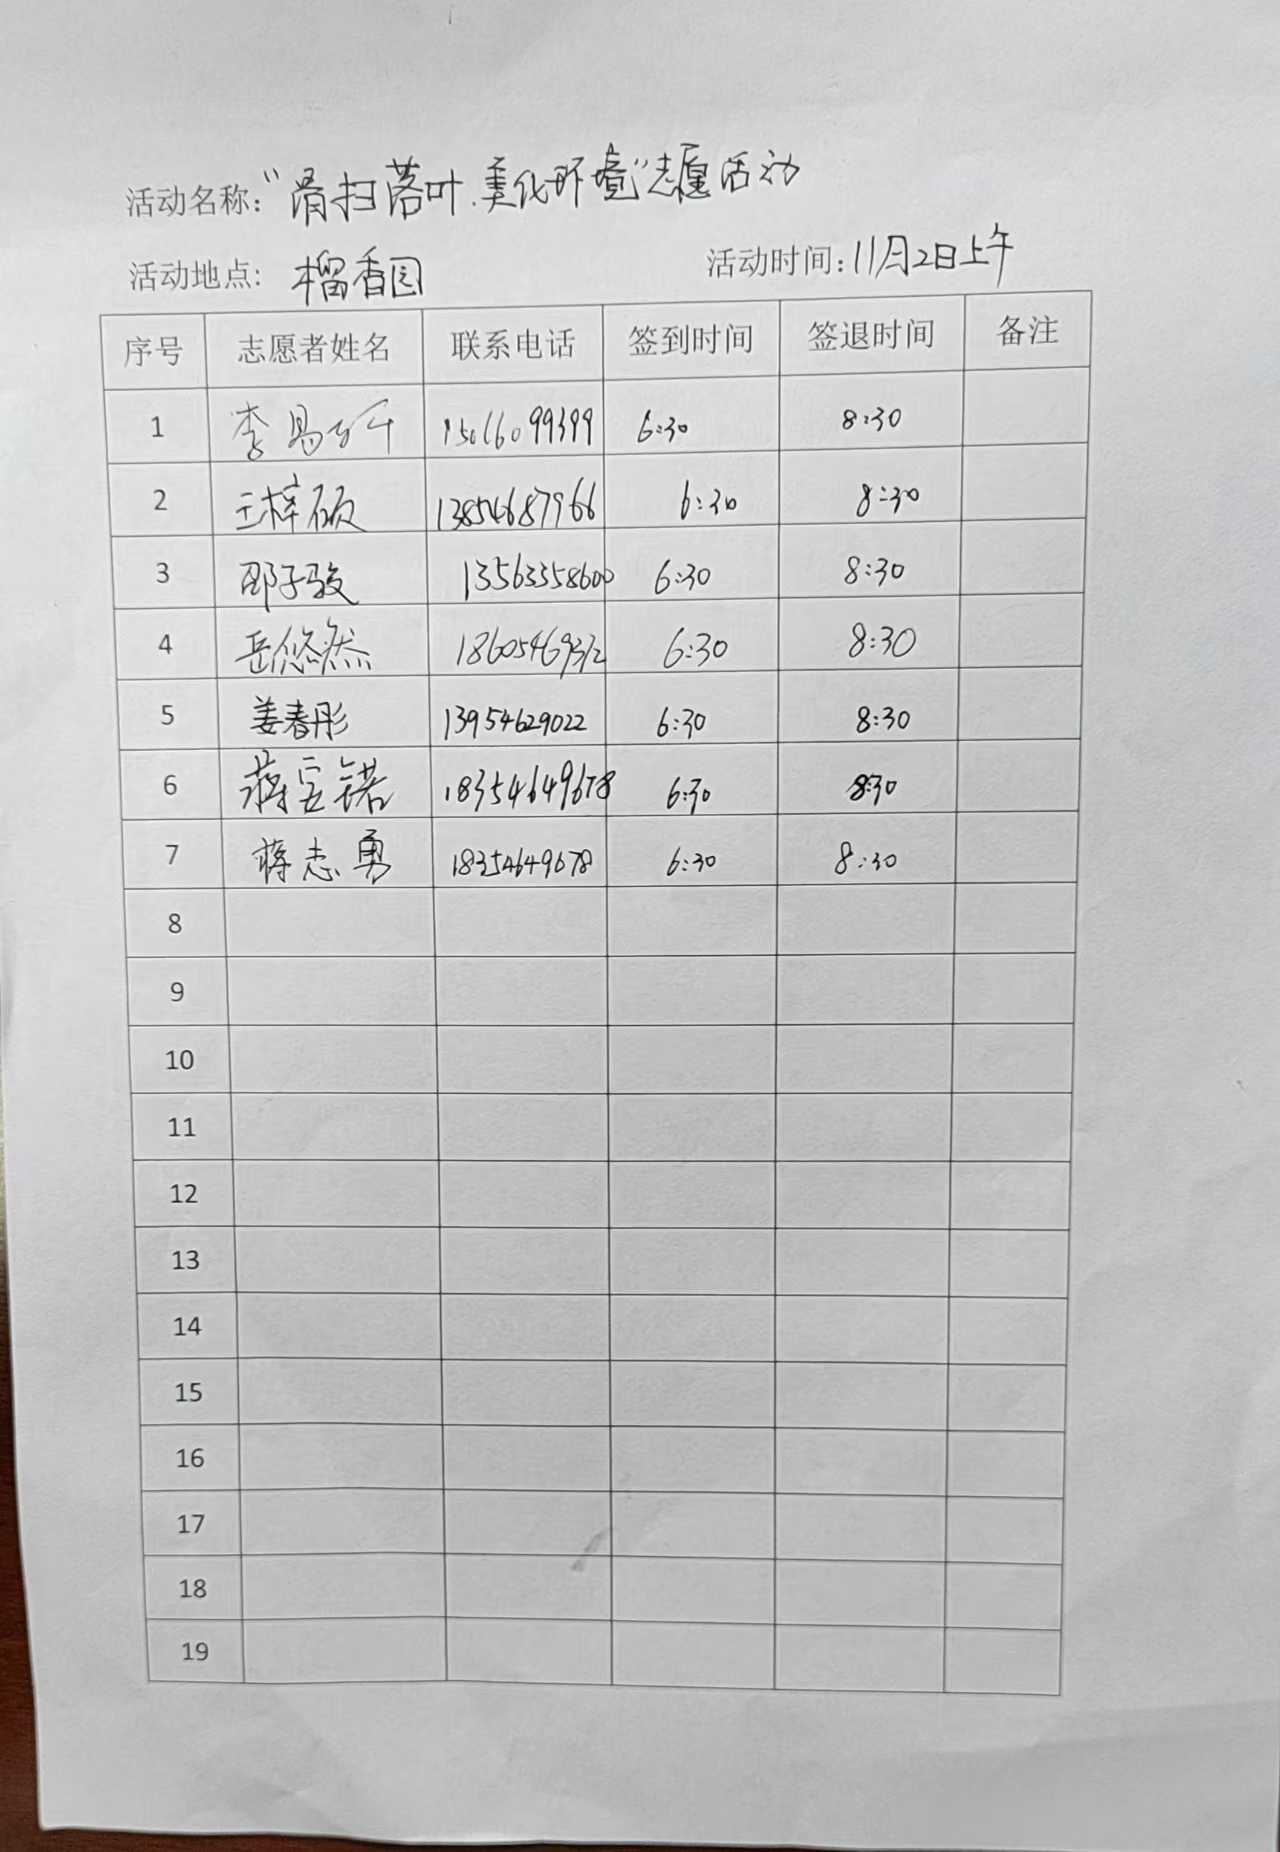 活动名称:“清扫落叶.美化环境”志愿活动
活动地点: 榴香园 活动时间:11月2日上午
序号 志愿者姓名 联系电话 签到时间 签退时间 备注
1 李易 15066099399 6:30 8:30
2 王梓硕 13854687966 6:30 8:30
3 邵子骏 13563358600 6:30 8:30
4 岳悠然 18605469312 6:30 8:30
5 姜春彤 13954629022 6:30 8:30
6 蒋宜锘 18354649678 6:30 8:30
7 蒋志勇 18354649678 6:30 8:30
8
9
10
11
12
13
14
15
16
17
18
19